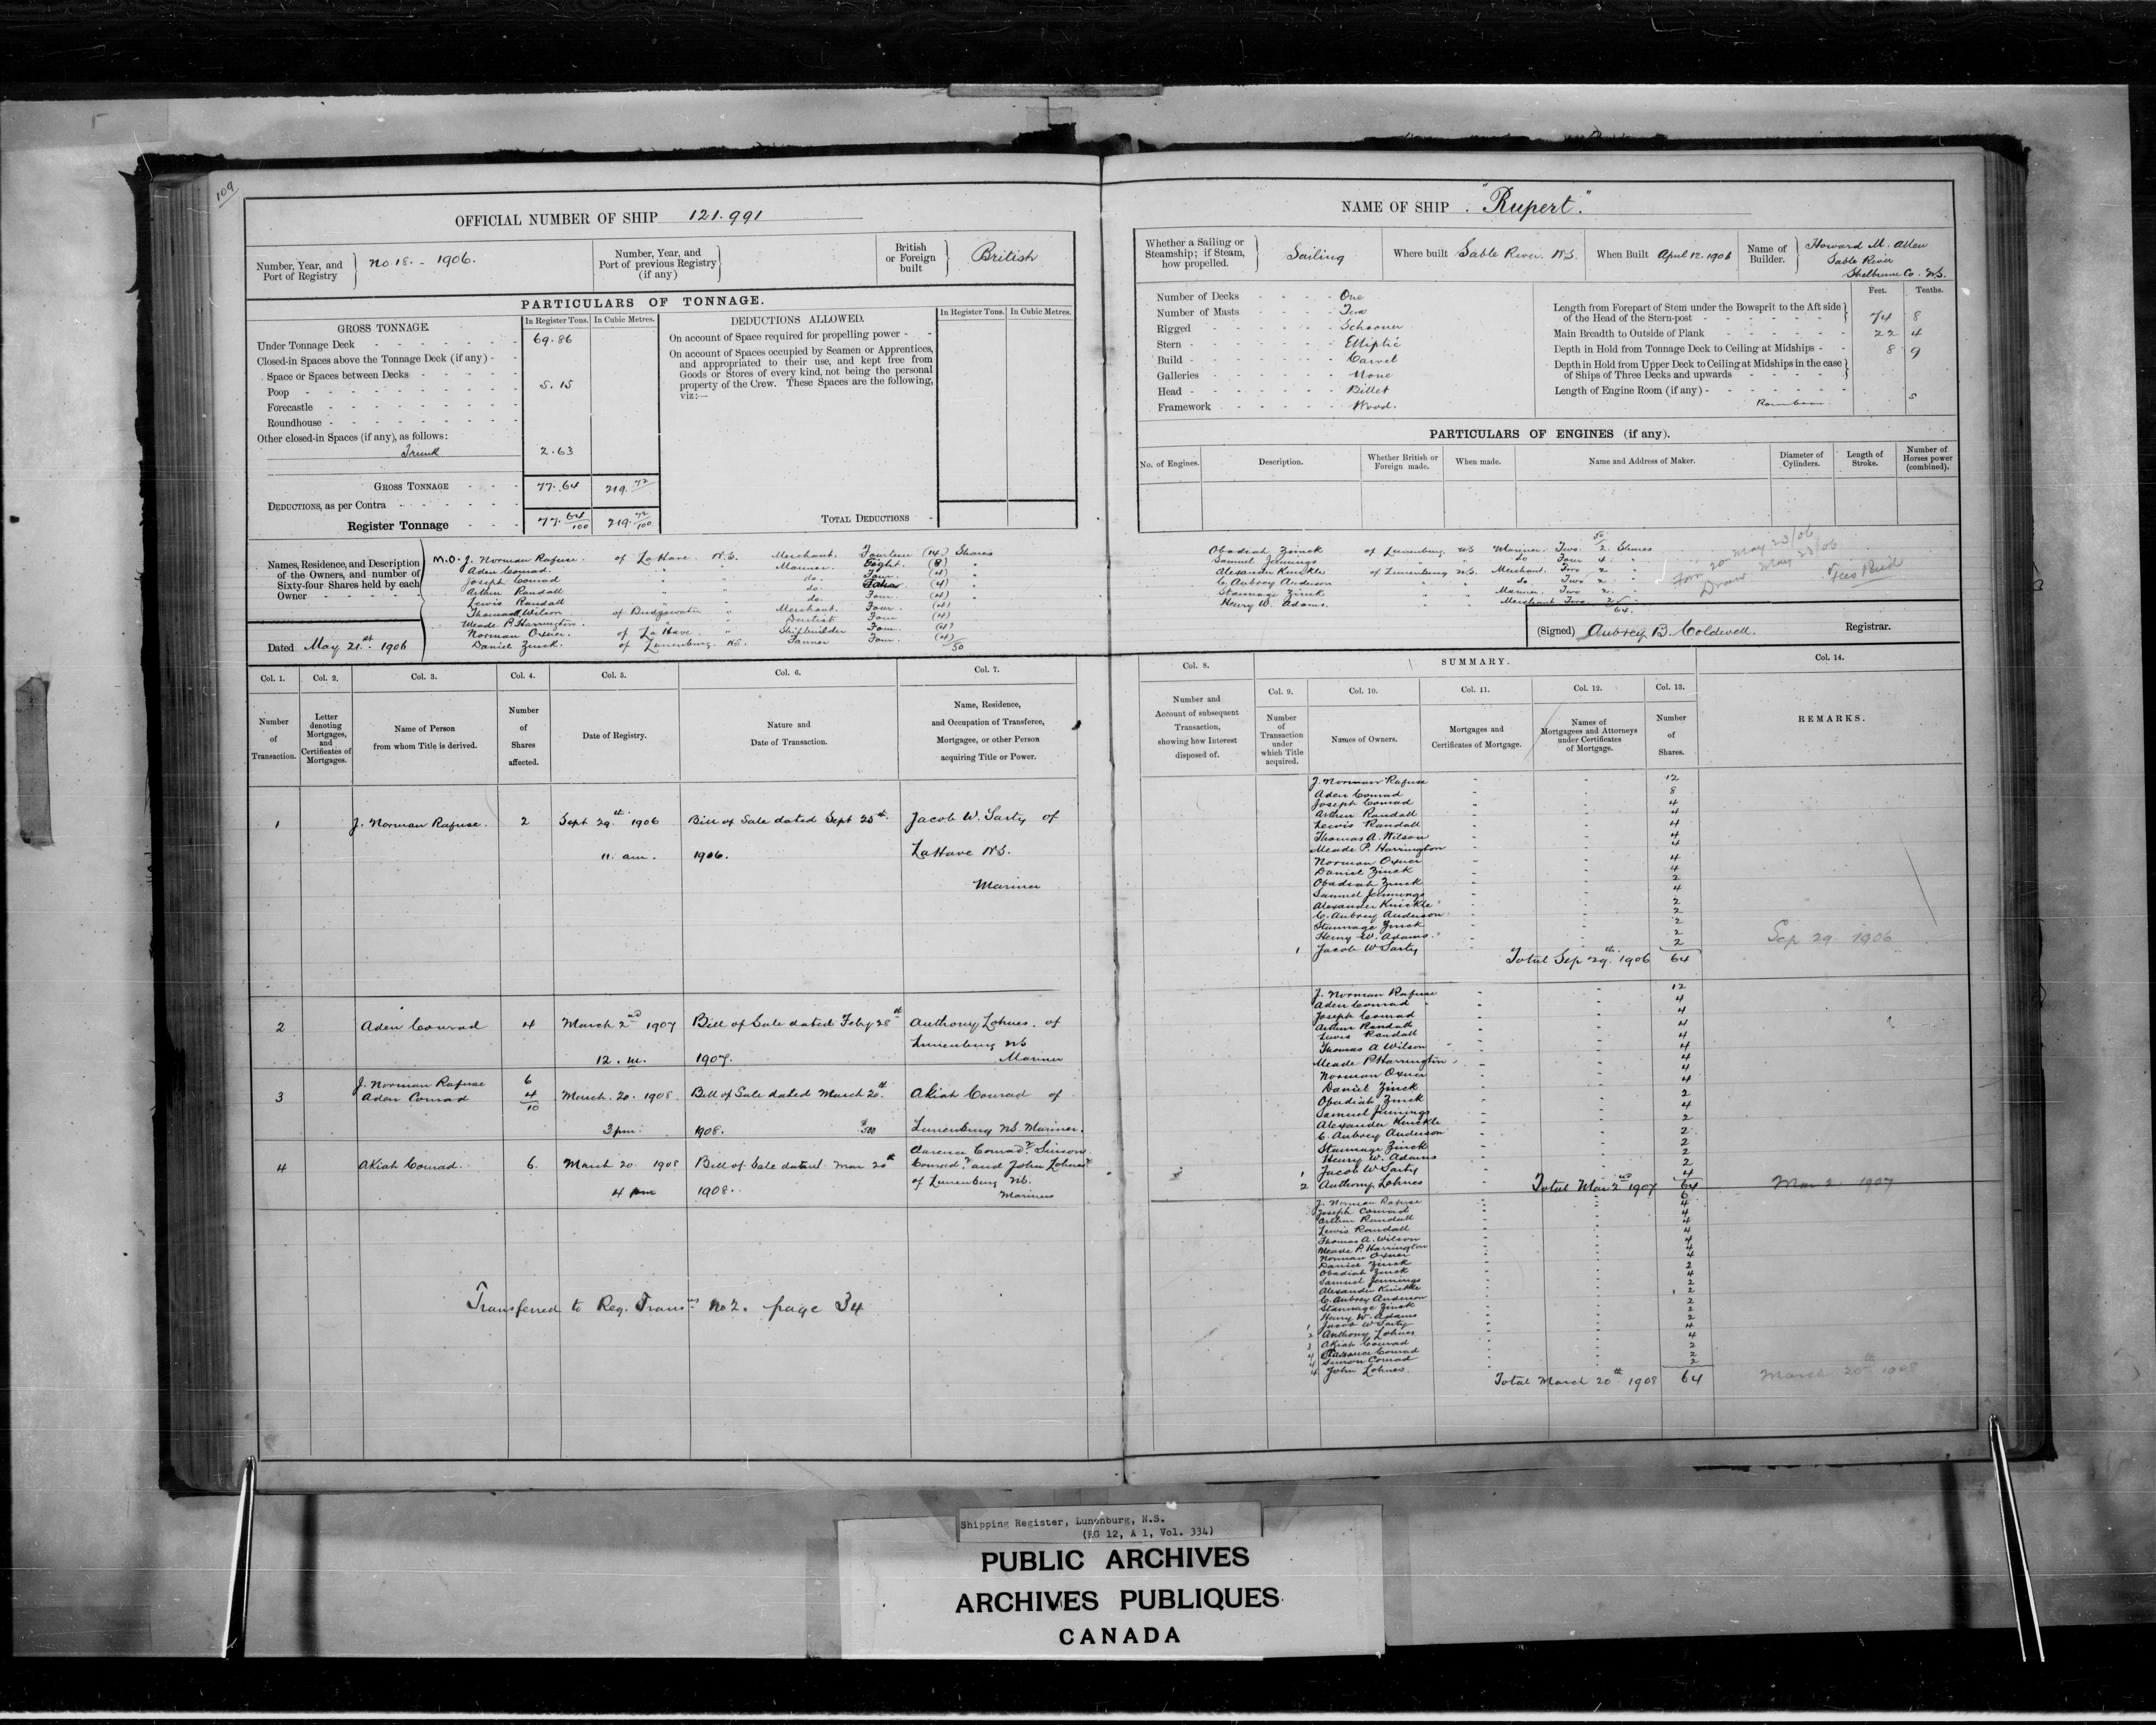 109
OFFICIAL NUMBER OF SHIP 121.991
Number, Year, and Port of Registry
No 18. - 1906.
Number, Year, and Port of previous Registry (if any)
British or Foreign built
British
PARTICULARS OF TONNAGE.
GROSS TONNAGE.
In Register Tons.
In Cubic Metres.
Under Tonnage Deck 69.86
Closed-in Spaces above the Tonnage Deck (if any) -
Space or Spaces between Decks
Poop 5.15
Forecastle
Roundhouse
Other closed-in Spaces (if any), as follows:
Trunk 2.63
GROSS TONNAGE 77.64 219.72
DEDUCTIONS, as per Contra
Register Tonnage 77.64/100 219.72/100
DEDUCTIONS ALLOWED.
In Register Tons.
In Cubic Metres.
On account of Space required for propelling power - -
On account of Spaces occupied by Seamen or Apprentices,
and appropriated to their use, and kept free from
Goods or Stores of every kind, not being the personal
property of the Crew. These Spaces are the following,
viz:—
TOTAL DEDUCTIONS -
Names, Residence, and Description
of the Owners, and number of
Sixty-four Shares held by each
Owner
Dated May 21st 1906
M.O. J. Norman Rafuse. of LaHave N.S. Merchant. Fourteen (14) Shares
Aden Conrad. " " Mariner. Eight. (8) "
Joseph Conrad " " do. Four. (4) "
Arthur Randall " " do. (4) "
Lewis Randall " " do. Four. (4)
Thomas A Wilson. of Bridgewater " Merchant. Four. (4)
Meade P. Harrington. " " Dentist Four (4)
Norman Oxner. of LaHave. " Shipbuilder Four. (4)
Daniel Zinck. of Lunenburg. NS. Tanner Four. (4)
50
Col. 1.
Col. 2.
Col. 3.
Col. 4.
Col. 5.
Col. 6.
Col. 7.
Number of Transaction.
Letter denoting Mortgages, and Certificates of Mortgages.
Name of Person from whom Title is derived.
Number of Shares affected.
Date of Registry.
Nature and Date of Transaction.
Name, Residence, and Occupation of Transferee, Mortgagee, or other Person acquiring Title or Power.
1 J. Norman Rafuse. 2 Sept 29th 1906 Bill of Sale dated Sept 25th Jacob W. Sarty of
11. am. 1906. LaHave N.S.
Mariner
2 Aden Conrad 4 March 2nd 1907 Bill of Sale dated Feby 28th Anthony Lohnes. of
Lunenburg NS
12. m. 1907. Mariner
J. Norman Rafuse 6
3 Aden Conrad 4 March. 20. 1908 Bill of Sale dated March 20th Akiah Conrad of
10
3 pm. 1908. $500 Lunenburg NS. Mariner.
Clarence Conrad 2 Simon
4 Akiah Conrad. 6. March 20. 1908 Bill of Sale dated Mar 20th Conrad 2 and John Lohnes 2
of Lunenburg NS.
4 pm 1908. Mariners
Transferred to Reg. Transns No 2. page 34
NAME OF SHIP. "Rupert".
Whether a Sailing or Steamship; if Steam, how propelled.
Sailing
Where built Sable River. N.S.
When Built April 12. 1906
Name of Builder.
Howard M. Allen
Sable River
Shelburne Co. N.S.
Number of Decks One
Number of Masts Two
Rigged Schooner
Stern Elliptic
Build Carvel
Galleries None
Head Billet
Framework Wood.
Feet. Tenths.
Length from Forepart of Stem under the Bowsprit to the Aft side
of the Head of the Stern-post 74 8
Main Breadth to Outside of Plank 22 4
Depth in Hold from Tonnage Deck to Ceiling at Midships 8 9
Depth in Hold from Upper Deck to Ceiling at Midships in the case
of Ships of Three Decks and upwards
Length of Engine Room (if any)
5
PARTICULARS OF ENGINES (if any).
No. of Engines.
Description.
Whether British or Foreign made.
When made.
Name and Address of Maker.
Diameter of Cylinders.
Length of Stroke.
Number of Horses power (combined).
50
Obadiah Zinck of Lunenburg NS Mariner. Two. 2. Shares
Samuel Jennings " " do Four 4. "
Alexander Knickle of Lunenburg N.S. Merchant. Two 2 "
C. Aubrey Anderson " " do. Two 2 "
Stannage Zinck " " Mariner. Two 2. "
Henry W. Adams. " " Merchant Two 2
64.
Form 20 May 23/06
Draw May 23/06
Fees Paid
(Signed) Aubrey B. Coldwell. Registrar.
Col. 8.
SUMMARY.
Col. 9.
Col. 10.
Col. 11.
Col. 12.
Col. 13.
Col. 14.
Number and Account of subsequent Transaction, showing how Interest disposed of.
Number of Transaction under which Title acquired.
Names of Owners.
Mortgages and Certificates of Mortgage.
Names of Mortgagees and Attorneys under Certificates of Mortgage.
Number of Shares.
REMARKS.
J. Norman Rafuse 12
Aden Conrad 8
Joseph Conrad 4
Arthur Randall 4
Lewis Randall 4
Thomas A. Wilson 4
Meade P. Harrington 4
Norman Oxner 4
Daniel Zinck 4
Obadiah Zinck 2
Samuel Jennings 4
Alexander Knickle 2
C. Aubrey Anderson 2
Stannage Zinck 2
Henry W. Adams. 2
1 Jacob W Sarty 2
Total Sep 29th 1906 64
Sep 29. 1906
J. Norman Rafuse 12
Aden Conrad 4
Joseph Conrad 4
Arthur Randall 4
Lewis Randall 4
Thomas A Wilson 4
Meade P Harrington 4
Norman Oxner 4
Daniel Zinck 4
Obadiah Zinck 2
Samuel Jennings 4
Alexander Knickle 2
C. Aubrey Anderson 2
Stannage Zinck 2
Henry W. Adams 2
1 Jacob W Sarty 2
2 Anthony Lohnes 4
Total Mar 2nd 1907 64
Mar 2. 1907
J. Norman Rafuse 6
Joseph Conrad 4
Arthur Randall 4
Lewis Randall 4
Thomas A. Wilson 4
Meade P. Harrington 4
Norman Oxner 4
Daniel Zinck 4
Obadiah Zinck 2
Samuel Jennings 4
Alexander Knickle 2
C. Aubrey Anderson 2
Stannage Zinck 2
Henry W. Adams 2
1 Jacob W Sarty 2
2 Anthony Lohnes 4
3 Akiah Conrad 4
4 Clarence Conrad 2
4 Simon Conrad 2
4 John Lohnes. 2
Total March 20th 1908 64
March 20th 1908
Shipping Register, Lunenburg, N.S.
(RG 12, A 1, Vol. 334)
PUBLIC ARCHIVES
ARCHIVES PUBLIQUES
CANADA